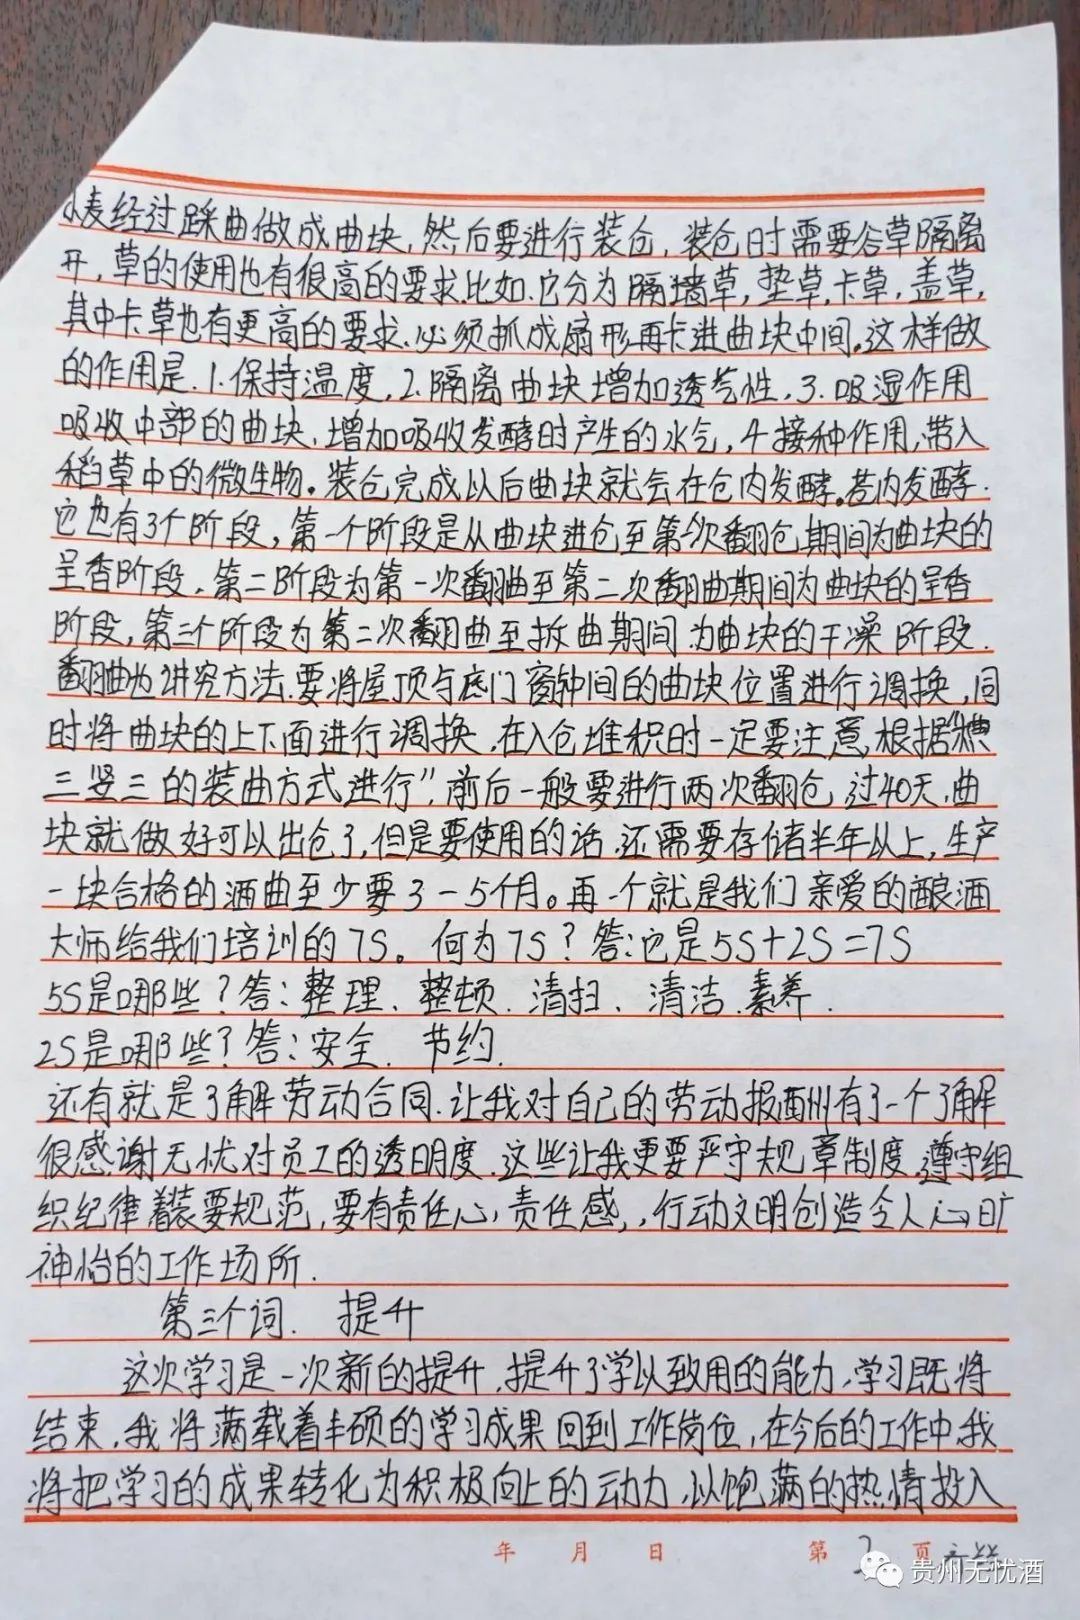 小麦经过踩曲做成曲块,然后要进行装仓,装仓时需要谷草隔离
开,草的使用也有很高的要求.比如.它分为隔墙草,垫草,卡草,盖草,
其中卡草也有更高的要求.必须抓成扇形再卡进曲块中间。这样做
的作用是.1.保持温度,2.隔离曲块增加透气性,3.吸湿作用
吸收中部的曲块,增加吸收发酵时产生的水气,4接种作用,带入
稻草中的微生物。装仓完成以后曲块就会在仓内发酵。仓内发酵.
它也有3个阶段,第一个阶段是从曲块进仓至第一次翻仓期间为曲块的
呈香阶段,第二阶段为第一次翻曲至第二次翻曲期间为曲块的呈香
阶段,第三个阶段为第二次翻曲至拆曲期间.为曲块的干燥阶段.
翻曲也讲究方法.要将屋顶与底门窗中间的曲块位置进行调换,同
时将曲块的上下面进行调换,在入仓堆积时一定要注意,根据"横
三竖三的装曲方式进行",前后一般要进行两次翻仓,过40天,曲
块就做好可以出仓了,但是要使用的话,还需要存储半年以上,生产
一块合格的酒曲至少要3-5个月。再一个就是我们亲爱的酿酒
大师给我们培训的7S。何为7S?答:它是5S+2S=7S
5S是哪些?答:整理.整顿.清扫.清洁.素养.
2S是哪些?答:安全.节约.
还有就是了解劳动合同.让我对自己的劳动报酬有了一个了解
很感谢无忧对员工的透明度.这些让我更要严守规章制度,遵守组
织纪律着装要规范,要有责任心,责任感,,行动文明创造令人心旷
神怡的工作场所.
第三个词.提升
这次学习是一次新的提升,提升了学以致用的能力,学习既将
结束,我将满载着丰硕的学习成果回到工作岗位,在今后的工作中,我
将把学习的成果转化为积极向上的动力,以饱满的热情投入
年 月 日 第 2 页
贵州无忧酒